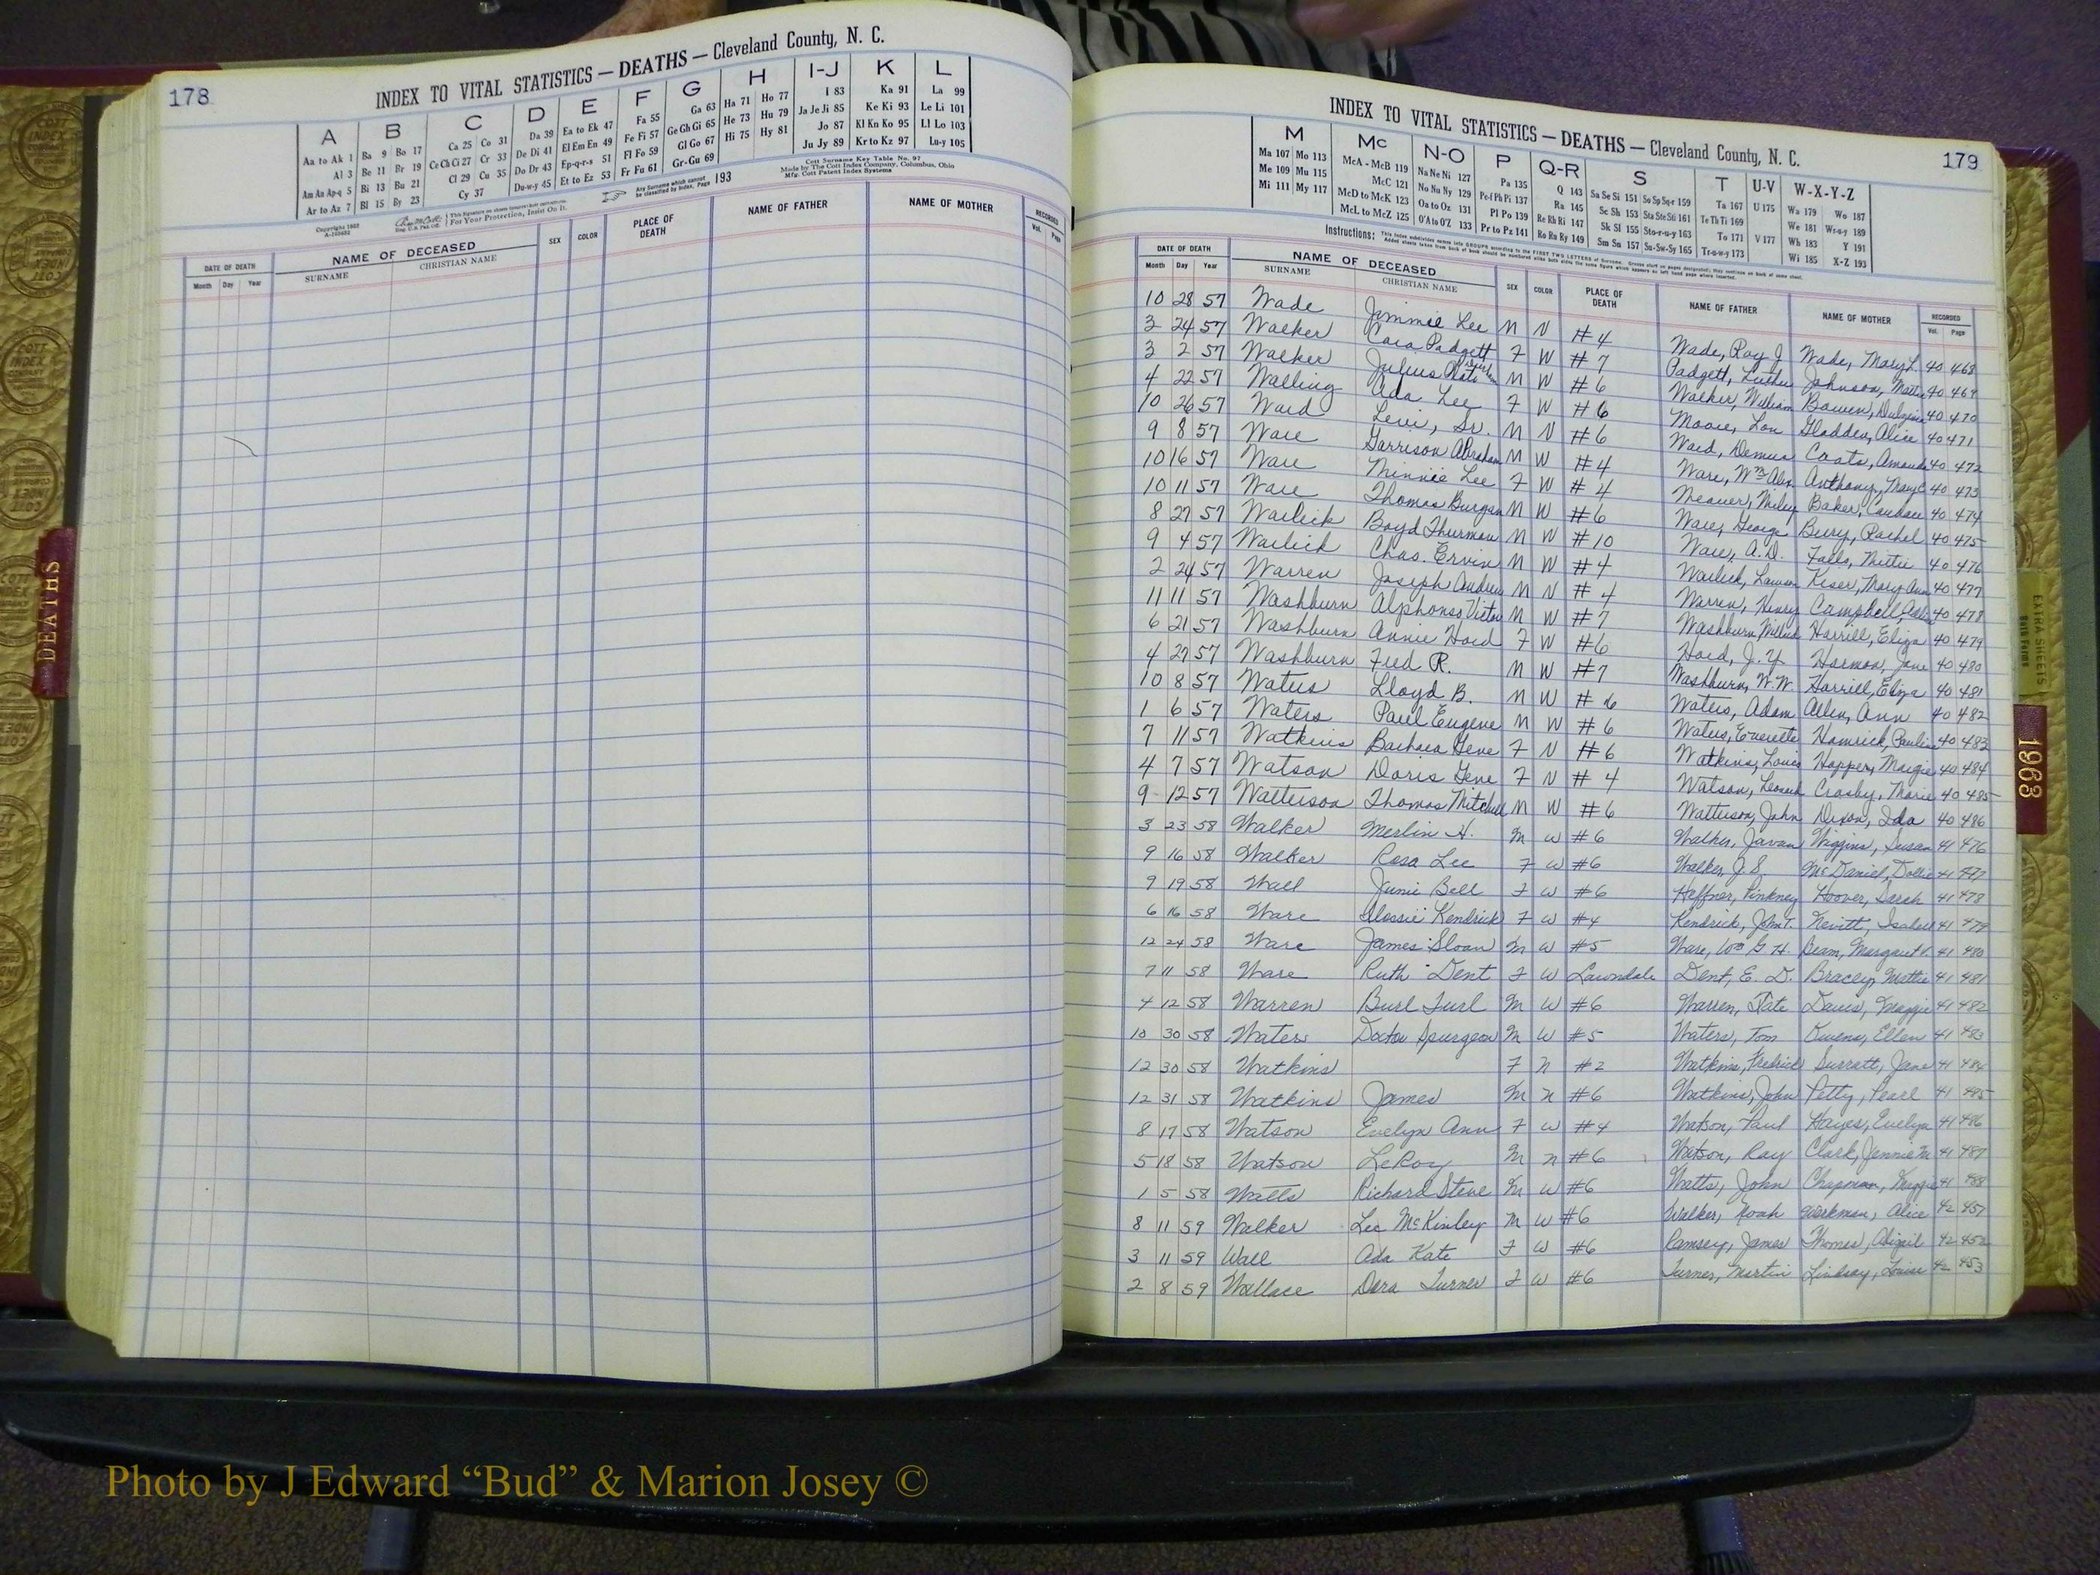 178
INDEX TO VITAL STATISTICS — DEATHS — Cleveland County, N. C.
A B C D E F G H I-J K L
Aa to Ak 1 Ba 9 Bo 17 Ca 25 Co 31 Da 39 Ea to Ek 47 Fa 55 Ga 63 Ha 71 Ho 77 I 83 Ka 91 La 99
Al 3 Be 11 Br 19 Ce Ch Ci 27 Cr 33 De Di 41 El Em En 49 Fe Fi 57 Ge Gh Gi 65 He 73 Hu 79 Ja Je Ji 85 Ke Ki 93 Le Li 101
Am An Ap-q 5 Bi 13 Bu 21 Cl 29 Cu 35 Do Dr 43 Ep-q-r-s 51 Fl Fo 59 Gl Go 67 Hi 75 Hy 81 Jo 87 Kl Kn Ko 95 Ll Lo 103
Ar to Az 7 Bl 15 By 23 Cy 37 Du-w-y 45 Et to Ez 53 Fr Fu 61 Gr-Gu 69 Ju Jy 89 Kr to Kz 97 Lu-y 105
Any Surname which cannot be classified by Index, Page 193
Cott Surname Key Table No. 97
Made by The Cott Index Company, Columbus, Ohio
Mfg. Cott Patent Index Systems
For Your Protection, Insist On It.
DATE OF DEATH NAME OF DECEASED SEX COLOR PLACE OF DEATH NAME OF FATHER NAME OF MOTHER RECORDED
Month Day Year SURNAME CHRISTIAN NAME Vol. Page
INDEX TO VITAL STATISTICS — DEATHS — Cleveland County, N. C.
179
M Mc N-O P Q-R S T U-V W-X-Y-Z
Ma 107 Mo 113 McA - McB 119 Na Ne Ni 127 Pa 135 Q 143 Sa Se Si 151 So Sp Sq-r 159 Ta 167 U 175 Wa 179 Wo 187
Me 109 Mu 115 McC 121 No Nu Ny 129 Pe-f Ph Pi 137 Ra 145 Sc Sh 153 Sta Ste Sti 161 Te Th Ti 169 We 181 Wr-u-y 189
Mi 111 My 117 McD to McK 123 Oa to Oz 131 Pl Po 139 Re Rh Ri 147 Sk Sl 155 Sto-r-u-y 163 To 171 V 177 Wh 183 Y 191
McL to McZ 125 O'A to O'Z 133 Pr to Pz 141 Ro Ru Ry 149 Sm Sn 157 Su-Sw-Sy 165 Tr-u-w-y 173 Wi 185 X-Z 193
Instructions:
DATE OF DEATH NAME OF DECEASED SEX COLOR PLACE OF DEATH NAME OF FATHER NAME OF MOTHER RECORDED
Month Day Year SURNAME CHRISTIAN NAME Vol. Page
10 28 57 Wade Jimmie Lee M N #4 Wade, Roy J. Wade, Mary L. 40 468
3 24 57 Walker Cora Padgett F W #7 Padgett, Luther Johnson, 40 469
3 2 57 Walker Julius Plato M W #6 Walker, William Bowen, 40 470
4 22 57 Walling Ada Lee F W #6 Moore, Lon Gladden, Alice 40 471
10 26 57 Ward Levi, Sr. M N #6 Ward, Coats, Amanda 40 472
9 8 57 Ware Garrison Abraham M W #4 Ware, Wm Alex Anthony, Mary C 40 473
10 16 57 Ware Minnie Lee F W #4 Baker, Candace 40 474
10 11 57 Ware Thomas Burgan M W #6 Ware, George Berry, Rachel 40 475
8 27 57 Warlick Boyd Thurman M W #10 A. D. Falls, Mittie 40 476
9 4 57 Warlick Chas. Ervin M W #4 Warlick, Lawson Keser, Mary Ann 40 477
2 24 57 Warren Joseph Andrew M N #4 Warren, Henry Campbell, 40 478
11 11 57 Washburn Alphonso Victor M W #7 Washburn, Harrill, Eliza 40 479
6 21 57 Washburn Annie Hord F W #6 Hord, J. Y. Harmon, Jane 40 480
4 27 57 Washburn Fred R. M W #7 Washburn, W. W. Harrill, Eliza 40 481
10 8 57 Waters Lloyd B. M W #6 Waters, Adam Allen, Ann 40 482
1 6 57 Waters Paul Eugene M W #6 Waters, Everette Hamrick, Pauline 40 483
7 11 57 Watkins Barbara Gene F N #6 Watkins, Louis Hopper, Margie 40 484
4 7 57 Watson Doris Gene F N #4 Watson, Leonard Crosby, Marie 40 485
9 12 57 Watterson Thomas Mitchell M W #6 Watterson, John Dixon, Ida 40 486
3 23 58 Walker Merlin H. M W #6 Walker, Javan Wiggins, Susan 41 476
9 16 58 Walker Rosa Lee F W #6 Walker, J. S. McDaniel, Dollie 41 477
9 19 58 Wall Junie Bell F W #6 Heffner, Pinkney Hoover, Sarah 41 478
6 16 58 Ware Flossie Kendrick F W #4 Kendrick, John T. Nevitt, Isabell 41 479
12 24 58 Ware James Sloan M W #5 Ware, Wm G. H. Beam, Margaret V. 41 480
7 11 58 Ware Ruth Dent F W Lawndale Dent, E. D. Bracey, Mattie 41 481
4 12 58 Warren Burl Furl M W #6 Warren, Tate Davis, Maggie 41 482
10 30 58 Waters Doctor Spurgeon M W #5 Waters, Tom Owens, Ellen 41 483
12 30 58 Watkins F N #2 Watkins, Fredrick Surratt, Jane 41 484
12 31 58 Watkins James M N #6 Watkins, John Petty, Pearl 41 485
8 17 58 Watson Evelyn Ann F W #4 Watson, Paul Hayes, Evelyn 41 486
5 18 58 Watson LeRoy M N #6 Watson, Ray Clark, Jennie M 41 487
1 5 58 Watts Richard Steve M W #6 Watts, John Chapman, Maggie 41 488
8 11 59 Walker Lee McKinley M W #6 Walker, Noah Workman, Alice 42 451
3 11 59 Wall Ada Kate F W #6 Ramsey, James Thomas, Abigail 42 452
2 8 59 Wallace Dora Turner F W #6 Turner, Martin Lindsay, Louise 42 453
DEATHS
EXTRA SHEETS
1963
Photo by J Edward “Bud” & Marion Josey ©